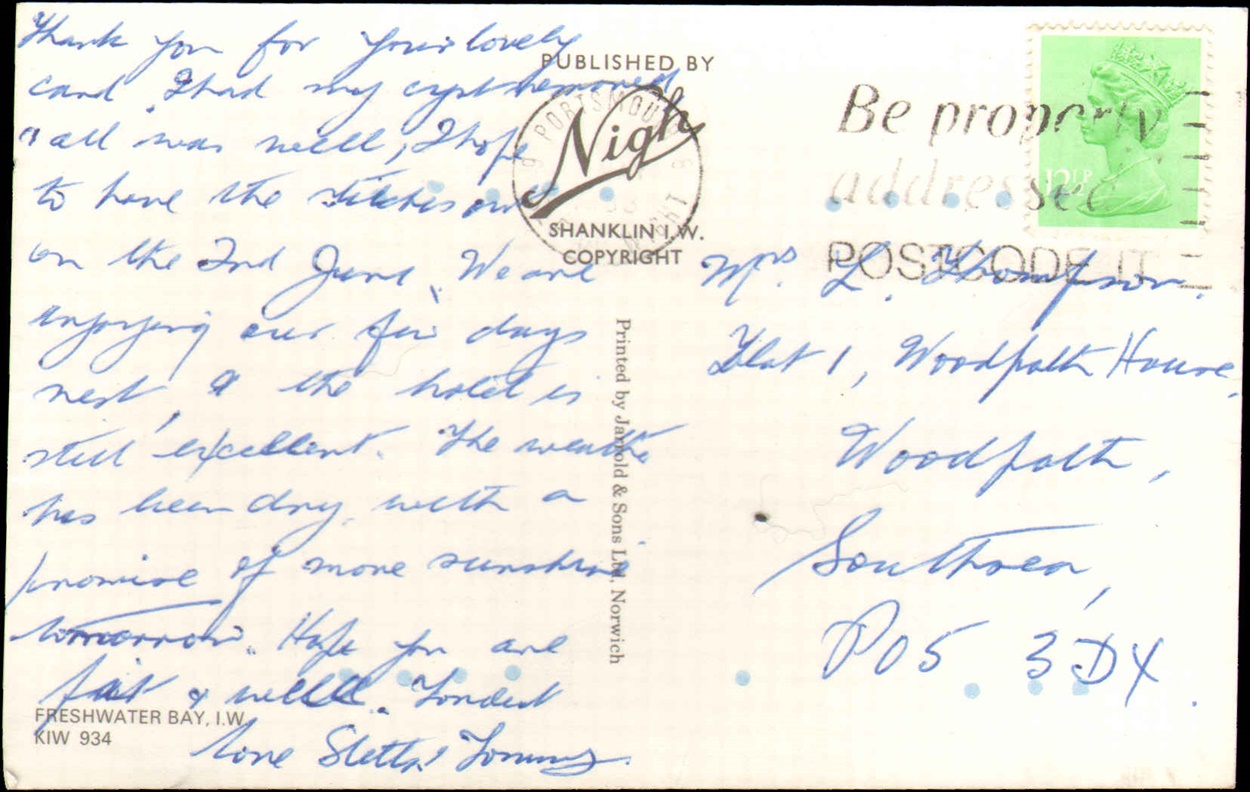 Thank you for your lovely
card. I had my cyst removed
& all was well, I hope
to have the stitches out
on the 2nd June. We are
enjoying our few days
rest, & the hotel is
still excellent. The weather
has been dry with a
promise of more sunshine
tomorrow. Hope you are
fit & well. Fondest
love Stella & Tommy.
FRESHWATER BAY, I.W.
KIW 934
PUBLISHED BY
Nigh
SHANKLIN I.W.
COPYRIGHT
Printed by Jarrold & Sons Ltd, Norwich
PORTSMOUTH
I. OF WIGHT
Be properly
addressed
POSTCODE IT
12½P
Mrs L. Thompson.
Flat 1, Woodpath House,
Woodpath,
Southsea,
PO5 3DX.